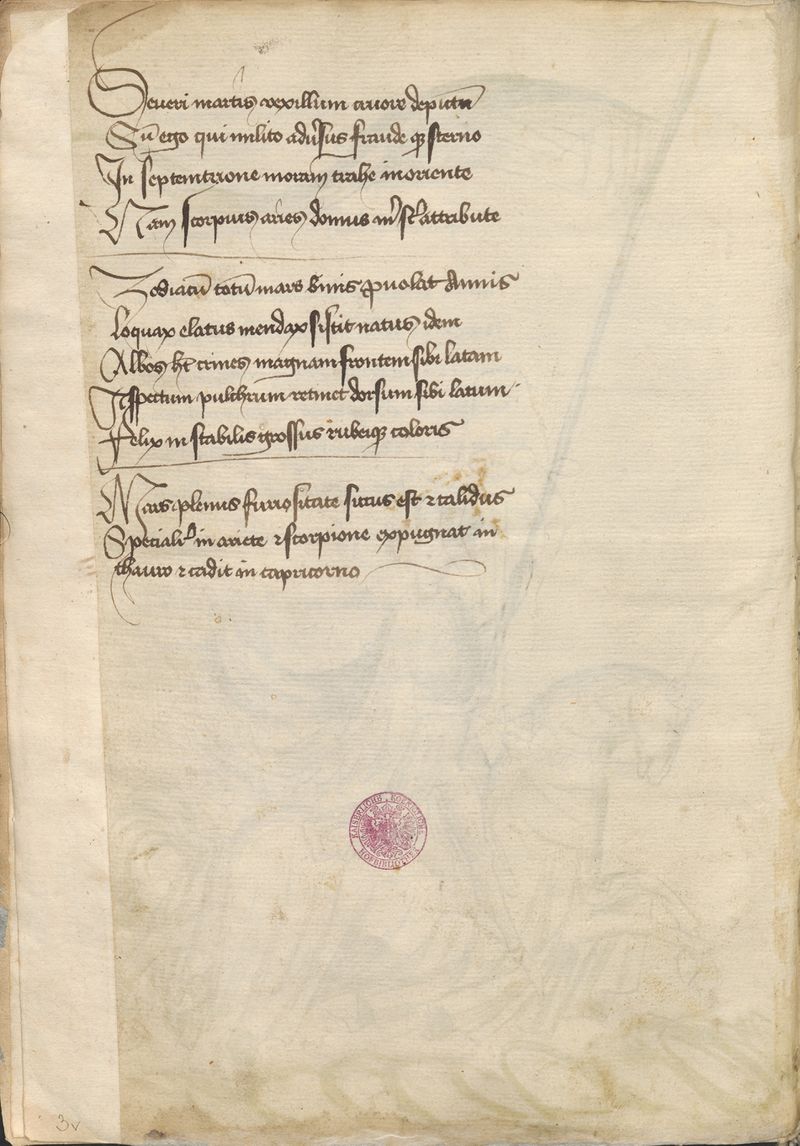 Seueri martis vexillum cruore depictũ
Sũ ego qui milito adũsus fraude qꝫ sterno
In septemtrione moram trahe inoriente
Nam scorpius aries domus m̃ sũt attribute
Zodiacũ totũ mars binis ꝓuolat Annis
loquax elatus mendax sistit natus idem
Albos hꝫ crines magnam frontem sibi latam
Aspectum pulchrum retinet dorsum sibi latum
Felix in stabilis grossus rubeiqꝫ coloris
Mars plenus furiositate siccus est ⁊ calidus
Specialr̃ in ariete ⁊ scorpione expugnat in
thauro ⁊ cadit in capricorno
KAISERLICHE KOENIGLICHE
HOFBIBLIOTHEK
3v